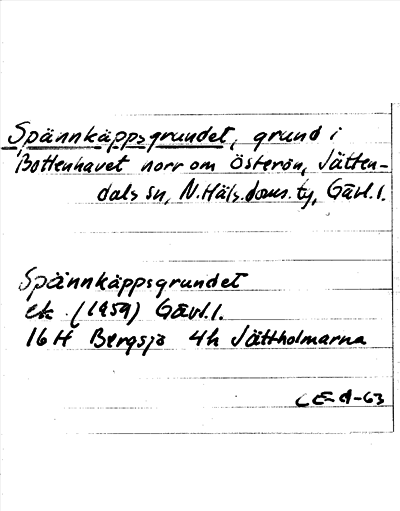 Spännkäppsgrundet, grund i
Bottenhavet norr om Österön, Jätten-
dals sn, N.Häls.doms.ty, Gävl.l.
Spännkäppsgrundet
ek (1959) Gävl.l.
16 H Bergsjö 4h Jättholmarna